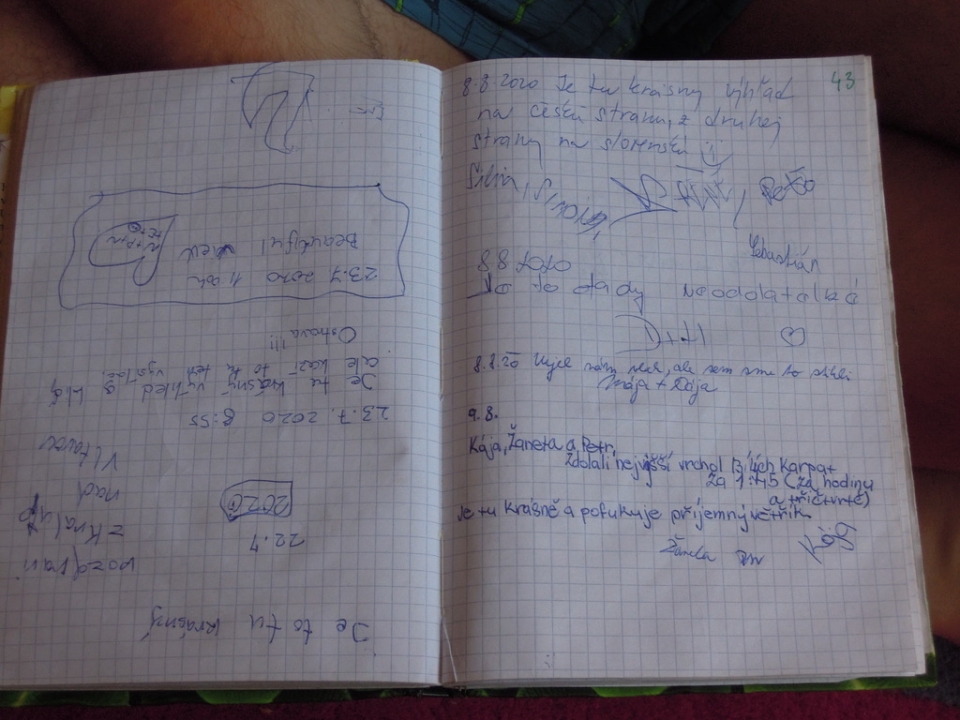 43
8.8.2020 Je tu krásny výhľad
na českú stranu, z druhej
strany na slovenskú
Silvia, Simona,
Sebastián
8.8 2020
Je to tady neodolatelné
D+H
8.8.20 Výjel nám nešel, ale sem sme to
Mája + Dája
9.8.
Kája, Žaneta a Petr,
Zdolali nejvyšší vrchol Bílích Karpat
Za 1:45 (za hodinu
a třičtvrtě)
Je tu krásně a pofukuje příjemný větřík.
Žaneta Kája
Je to tu krásný
22.7
2020
pozdraví
z Kralup
nad
Vltavou
23.7.2020 8:55
Je tu krásný výhled
ale kazí to ten
Ostrava!!!
23.7 2020 11
Beautiful view